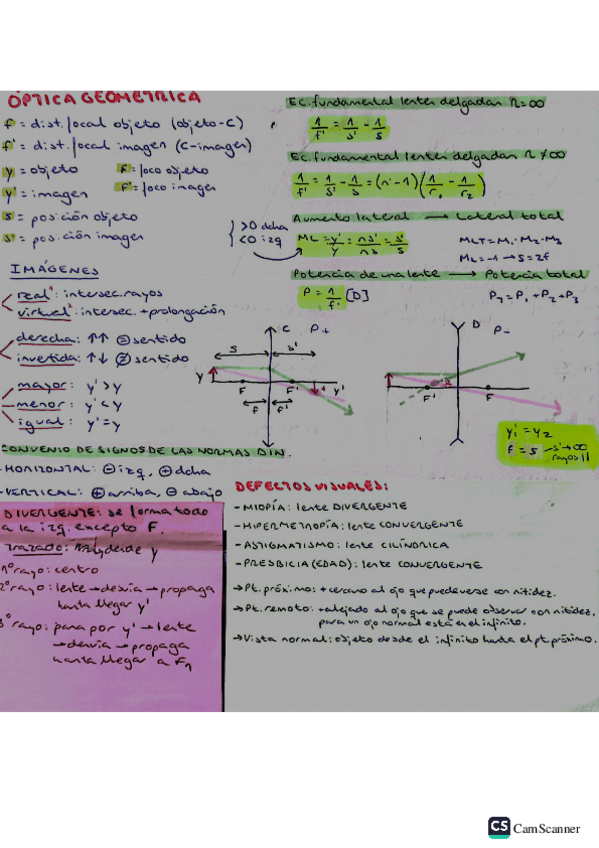 ÓPTICA GEOMÉTRICA
f = dist. focal objeto (objeto-C)
f' = dist. focal imagen (C-imagen)
y = objeto F = foco objeto
y' = imagen F' = foco imagen
s = posición objeto
s' = pos. imagen
>0 dcha
<0 izq
IMÁGENES
real: intersec. rayos
virtual: intersec. + prolongación
derecha: ↑↑ = sentido
invertida: ↑↓ ≠ sentido
mayor: y' > y
menor: y' < y
igual: y' = y
CONVENIO DE SIGNOS DE LAS NORMAS DIN.
-HORIZONTAL: ⊖ izq, ⊕ dcha
-VERTICAL: ⊕ arriba, ⊖ abajo
DIVERGENTE: se forma todo
a la izq. excepto F.
Trazado: desde y
1º rayo: centro
2º rayo: lente → desvía → propaga
hasta llegar y'
3º rayo: para por y' → lente
→ desvía → propaga
hasta llegar a F
Ec. fundamental lentes delgadas r=∞
1/f' = 1/s' - 1/s
Ec. fundamental lentes delgadas r≠∞
1/f' = 1/s' - 1/s = (n'-1)(1/r₁ - 1/r₂)
Aumento lateral → Lateral total
ML = y'/y = ns'/ns = s'/s
MLT = M₁·M₂·M₃
ML = -1 → s = 2f
Potencia de una lente → Potencia total
P = 1/f' [D]
P_T = P₁ + P₂ + P₃
C P+
s s'
y F F' y'
f f'
D P-
F' F
y₁' = y₂
F = s s' → ∞
rayos ||
DEFECTOS VISUALES:
-MIOPÍA: lente DIVERGENTE
-HIPERMETROPÍA: lente CONVERGENTE
-ASTIGMATISMO: lente CILÍNDRICA
-PRESBICIA (EDAD): lente CONVERGENTE
→ Pt. próximo: + cercano al ojo que puede verse con nitidez.
→ Pt. remoto: + alejado al ojo que se puede observar con nitidez.
para un ojo normal está en el infinito.
→ Vista normal: objeto desde el infinito hasta el pt próximo.
CS CamScanner